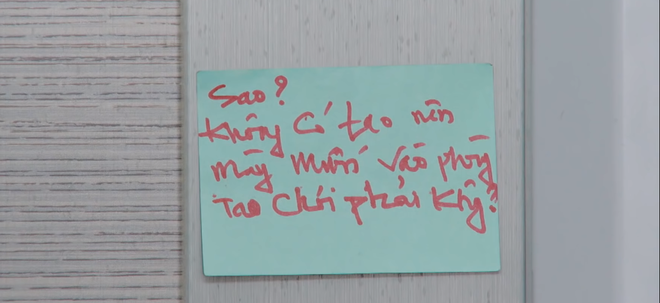 Sao?
Không có tao nên
mày muốn vào phòng
Tao chơi phải không?